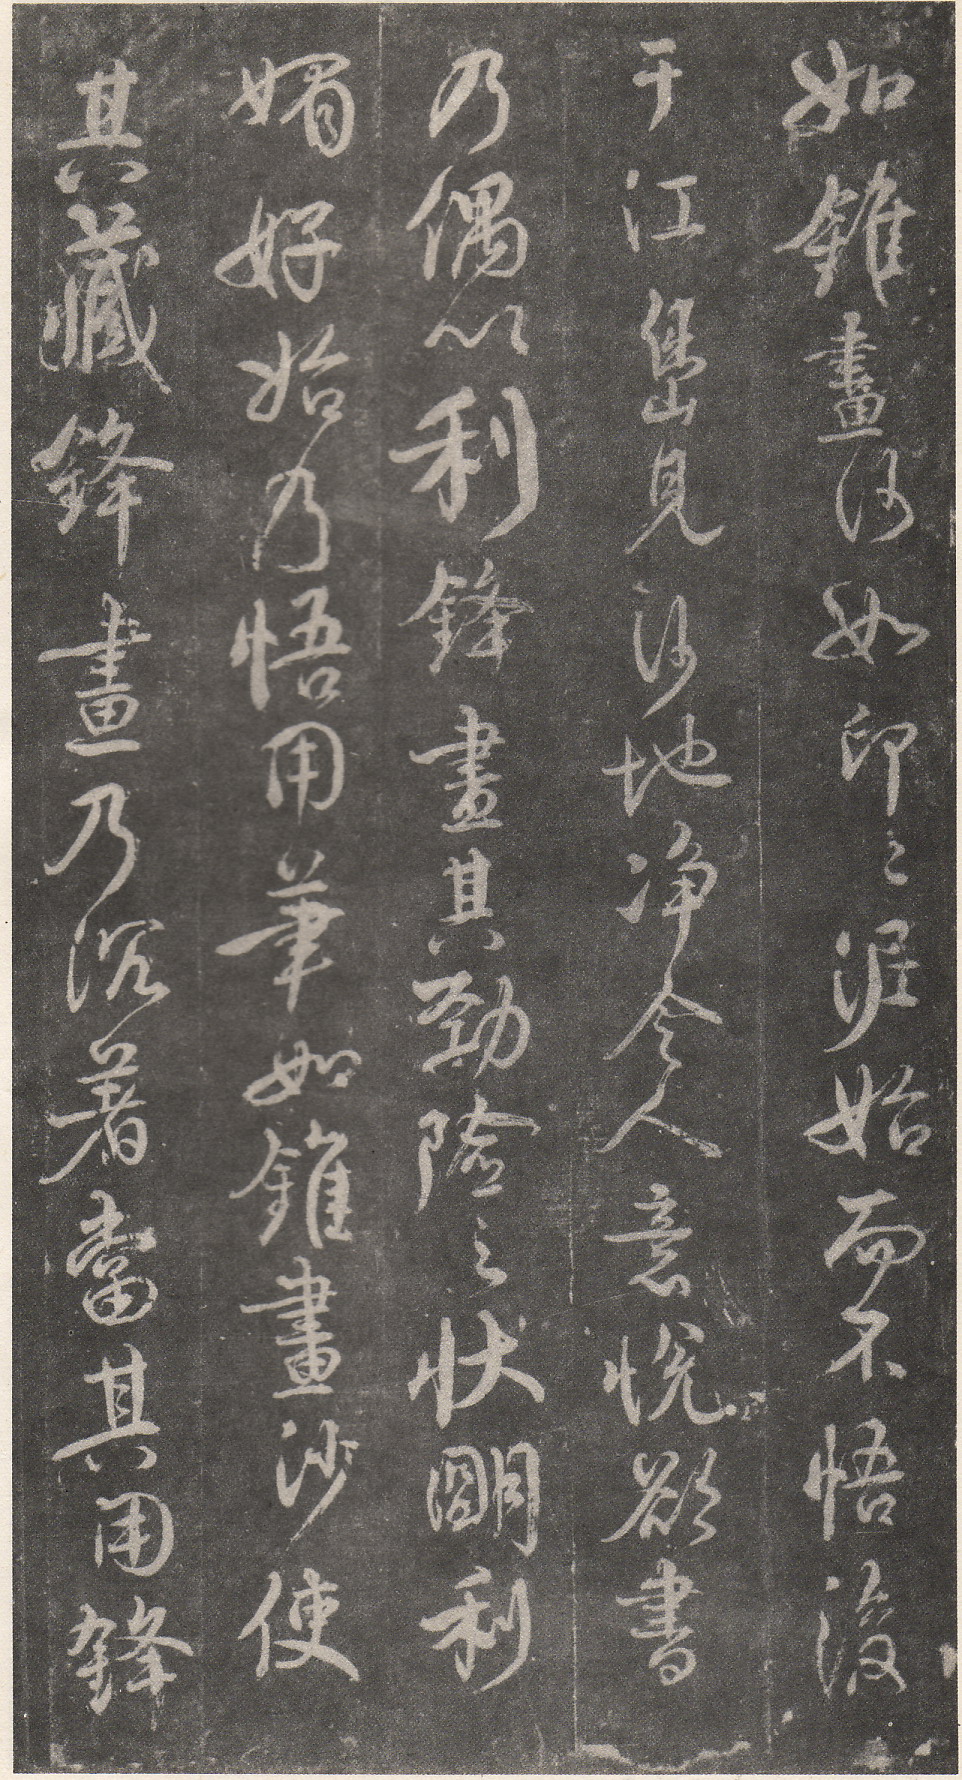 如錐畫沙如印印泥始而不悟後
于江島見沙地淨令人意悅欲書
乃偶以利鋒畫其勁險之狀明利
媚好始乃悟用筆如錐畫沙使
其藏鋒畫乃沉著當其用鋒